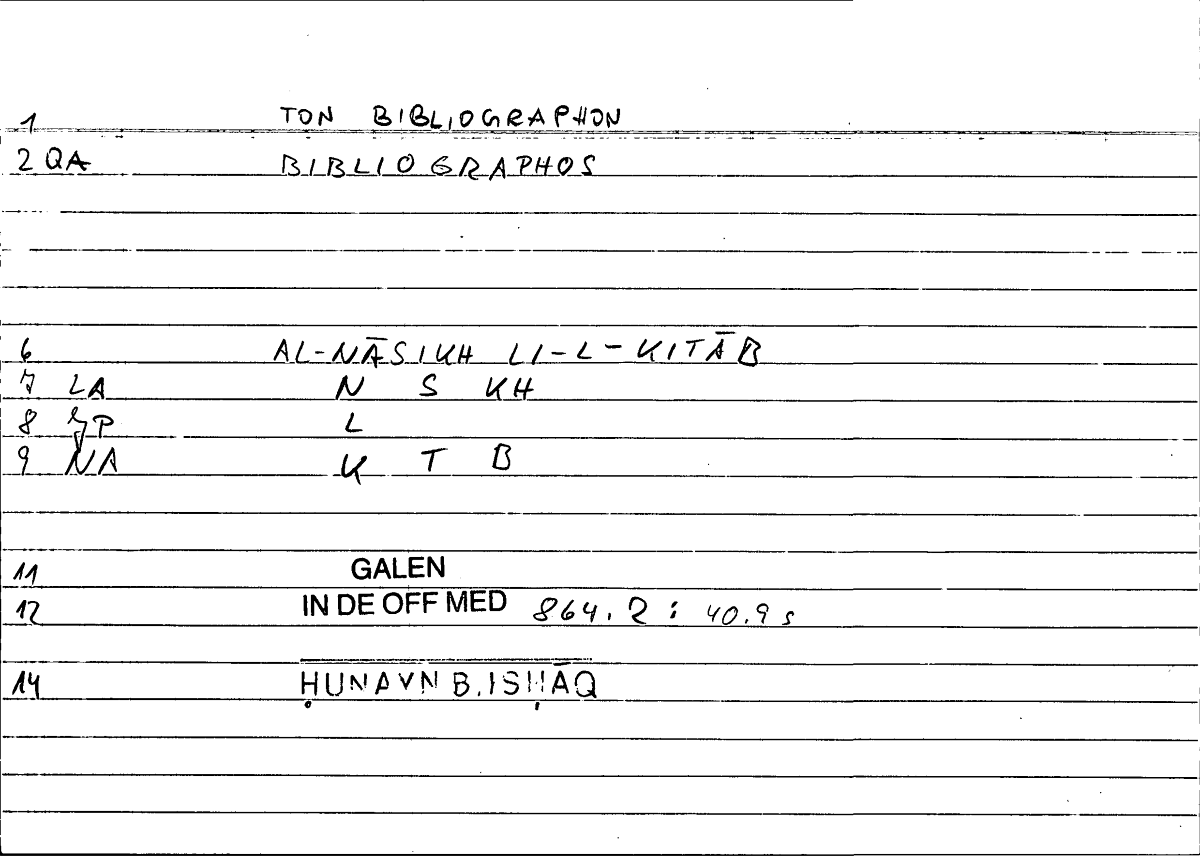 1 TON BIBLIOGRAPHON
2 QA BIBLIOGRAPHOS
6 AL-NĀSIKH LI-L-KITĀB
7 LA N S KH
8 P L
9 NA K T B
11 GALEN
12 IN DE OFF MED 864.2 : 40.9 s
14 ḤUNAYN B. ISḤĀQ